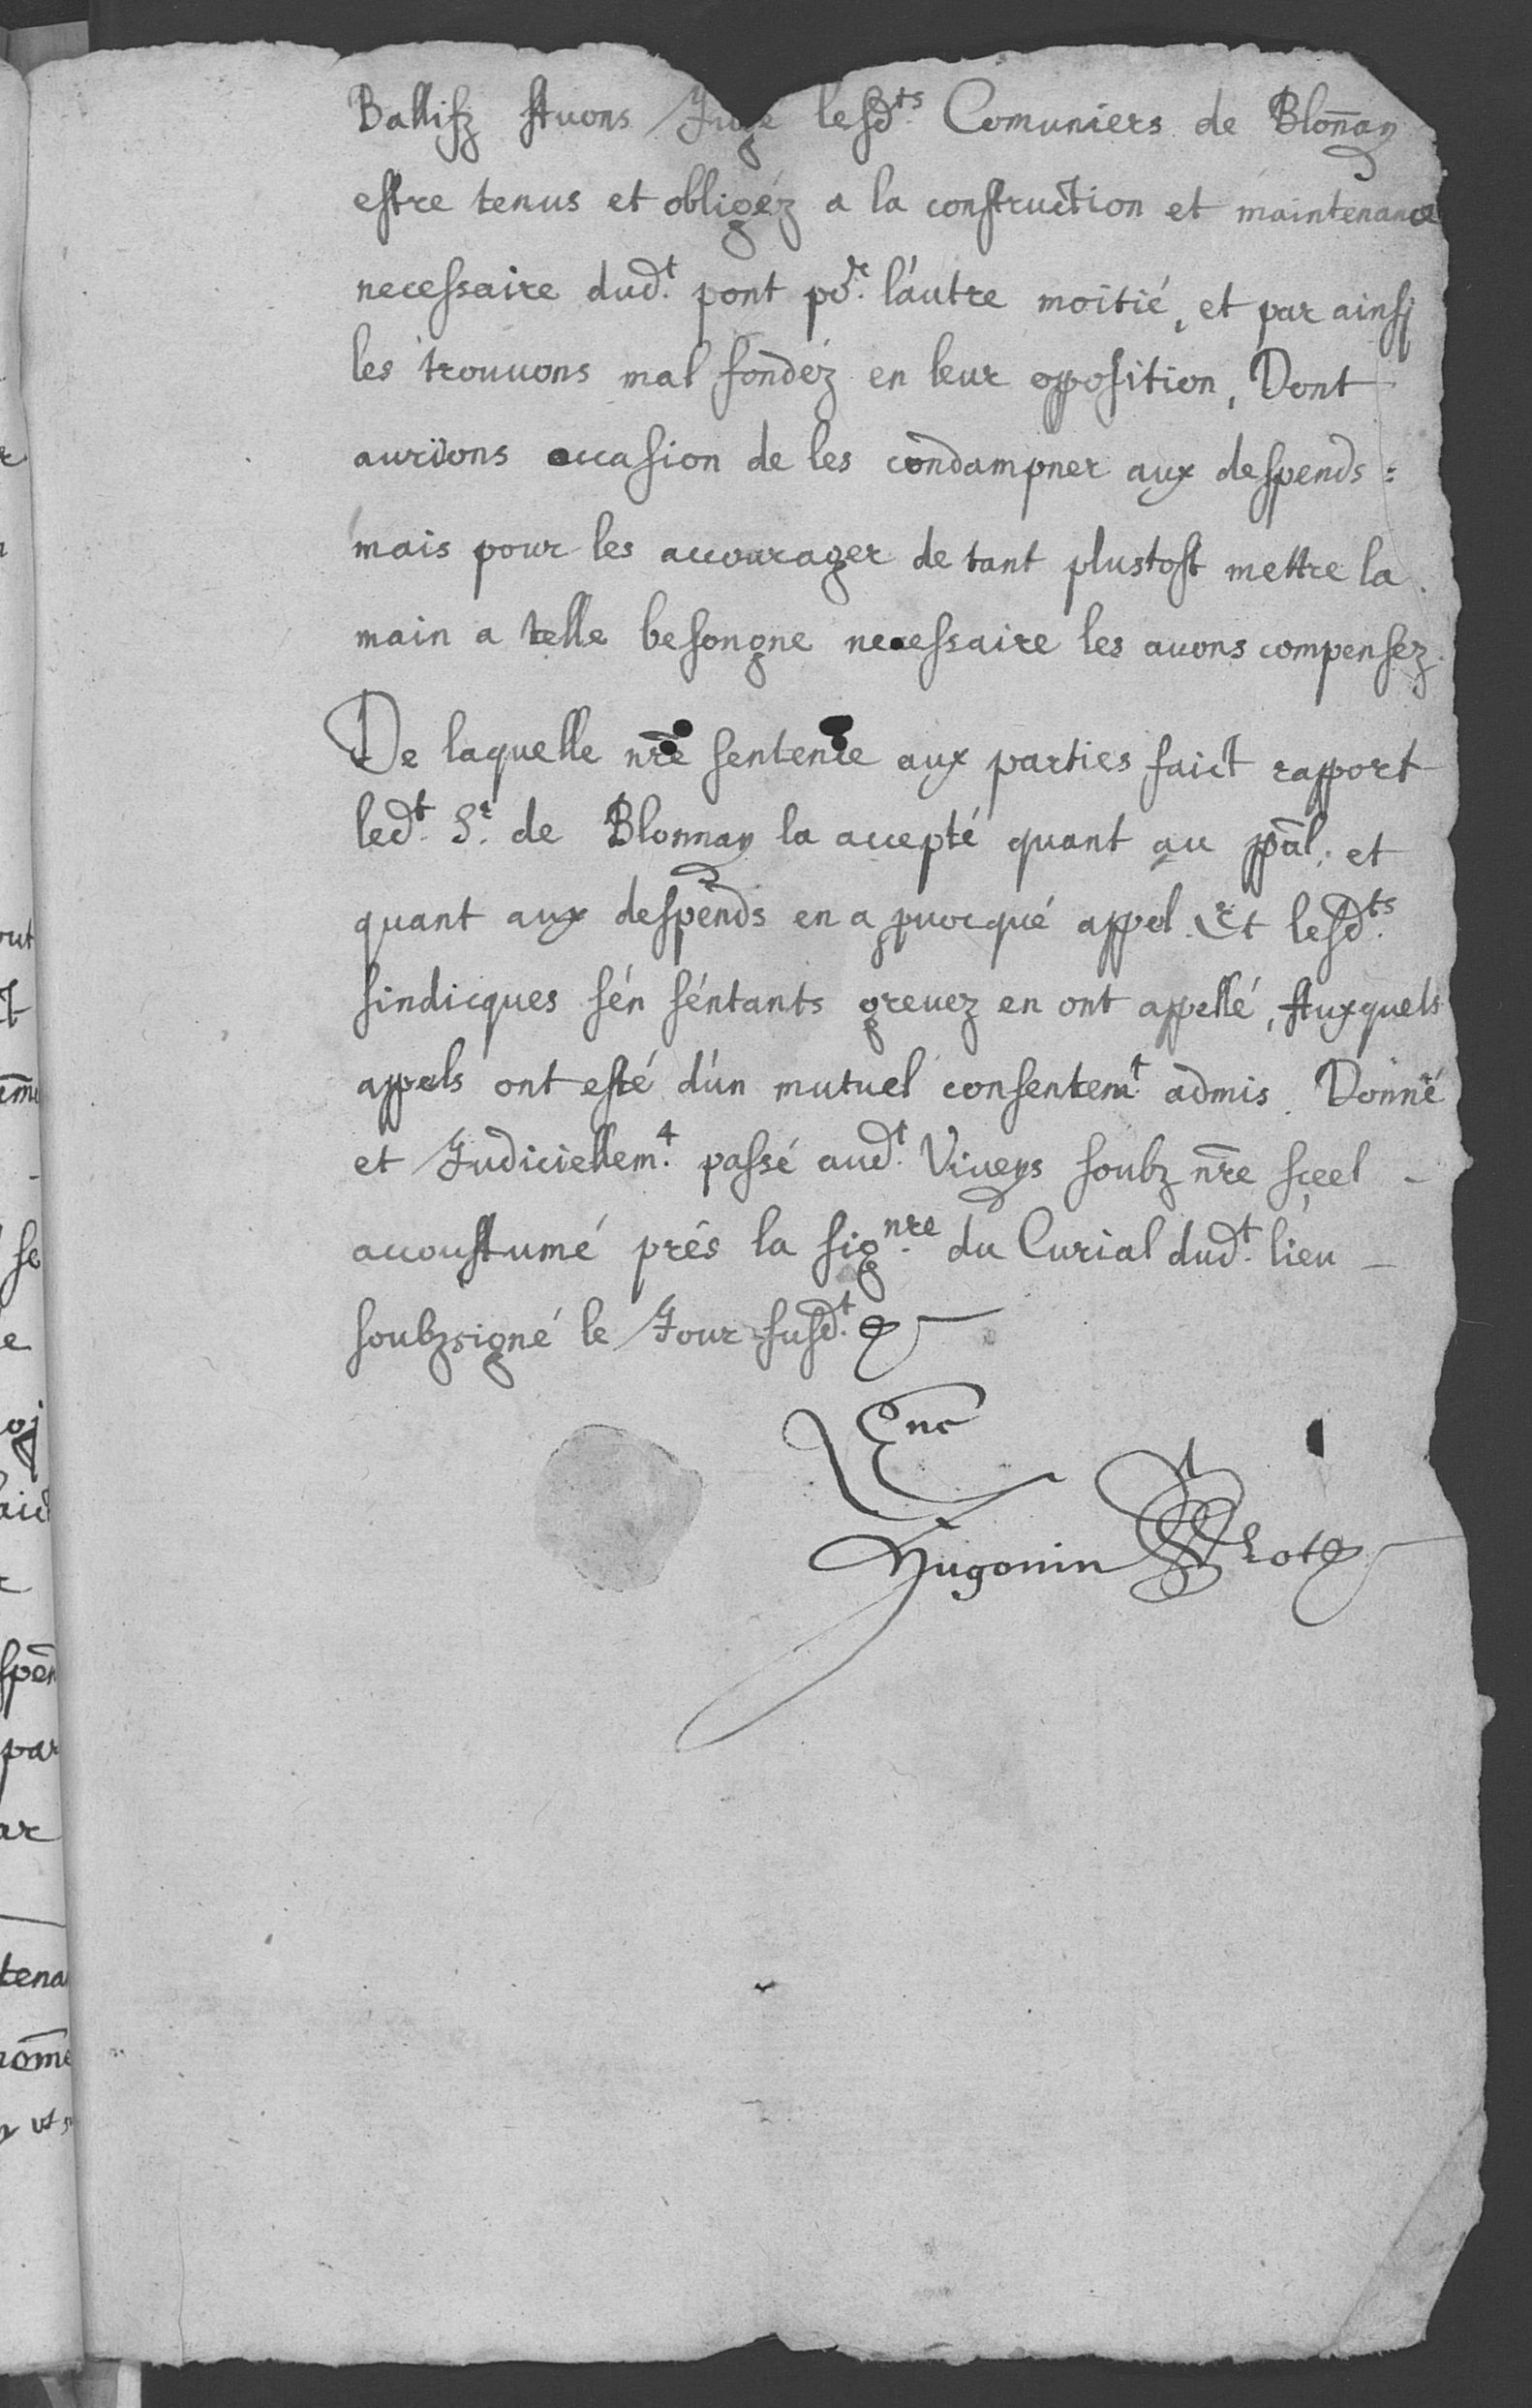 Ballifz Auons Jugé lesd.ts Comuniers de Blonnay
estre tenus et obligéz a la construction et maintenance
necessaire dud.t pont po.r l'autre moitié, et par ainsj
les trouvons mal fondéz en leur opposition, Dont
aurions occasion de les condampner aux despends :
mais pour les accourager de tant plustost mettre la
main a telle besongne necessaire les auons compensez.
De laquelle nre sentence aux parties faict rapport
led.t S.r de Blonnay la accepté quant au pãl. et
quant aux despends en a puocqué appel. Et lesd.ts
sindicques s'en séntants greuez en ont appellé, Auxquels
appels ont esté d'un mutuel consentem.t admis. Donné
et Judiciellem.t passé aud.t Viueys soubz nre sceel -
accoustumé prés la sig.nre du Curial dud.t lieu -
soubzsigné le Jour susd.t
Hugonin
out
se
e
oj
spen
par
ar
tena